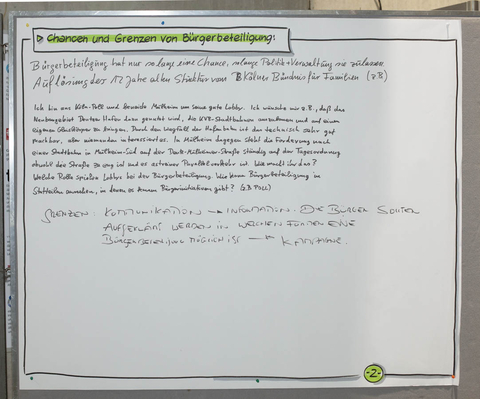 ▷ Chancen und Grenzen von Bürgerbeteiligung:
Bürgerbeteiligung hat nur so lange eine Chance, solange Politik + Verwaltung sie zulassen.
Auflösung des 12 Jahre alten Struktur vom Kölner Bündnis für Familien (z B)
Ich bin aus Köln-Poll und beneide Mülheim um seine gute Lobby. Ich wünsche mir z.B., daß das
Neubaugebiet Deutzer Hafen dazu genutzt wird, die KVB-Stadtbahnen und auf einen
eigenen Gleiskörper zu bringen. Durch den Wegfall der Hafenbahn ist das technisch sehr gut
machbar, aber niemanden interessiert es. In Mülheim dagegen steht die Forderung nach
einer Stadtbahn in Mülheim-Süd auf der Deutz-Mülheimer-Straße ständig auf der Tagesordnung
obwohl die Straße zu eng ist und es extremer Parallelverkehr ist. Wie macht ihr das?
Welche Rolle spielen Lobbys bei der Bürgerbeteiligung. Wie kann Bürgerbeteiligung in
Stadtteilen aussehen, in denen es keine Bürgerinitiativen gibt? (z.B. POLL)
GRENZEN: KOMMUNIKATION → INFORMATION. DIE BÜRGER SOLLTEN
AUFGEKLÄRT WERDEN IN WELCHEN PUNKTEN EINE
BÜRGERBETEILIGUNG MÖGLICH IST →
-2-